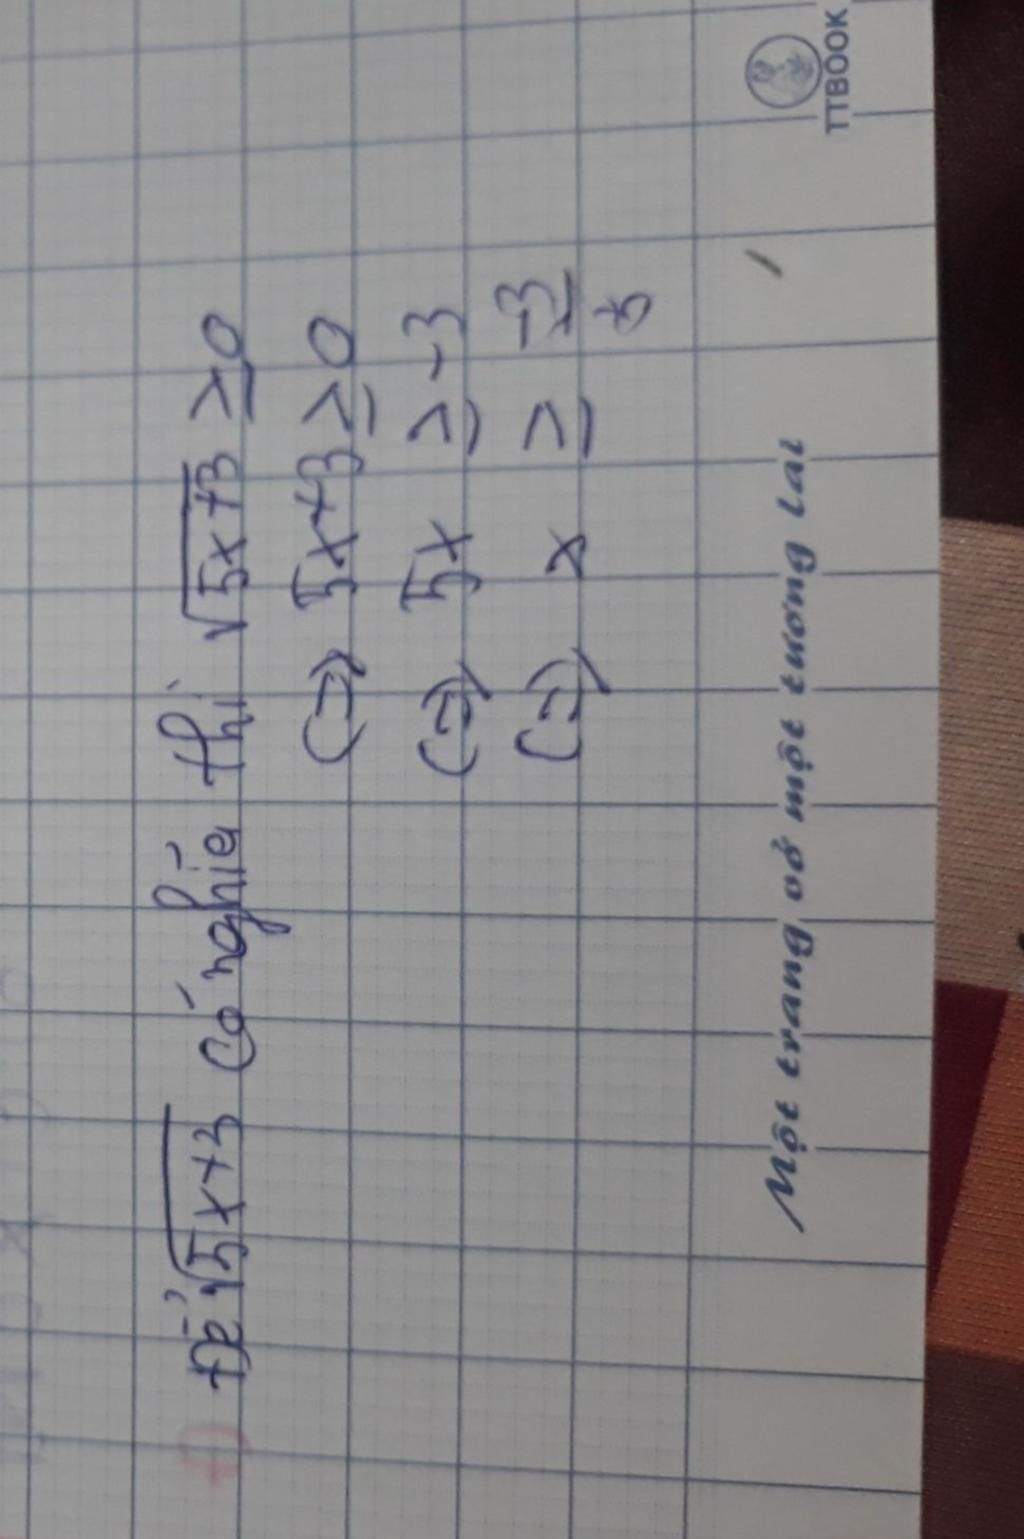 Để √5x+3 có nghĩa thì √5x+3 ≥ 0
(=) 5x+3 ≥ 0
(=) 5x ≥ -3
(=) x ≥ -3/5
Một trang vở một tương lai
TTBOOK